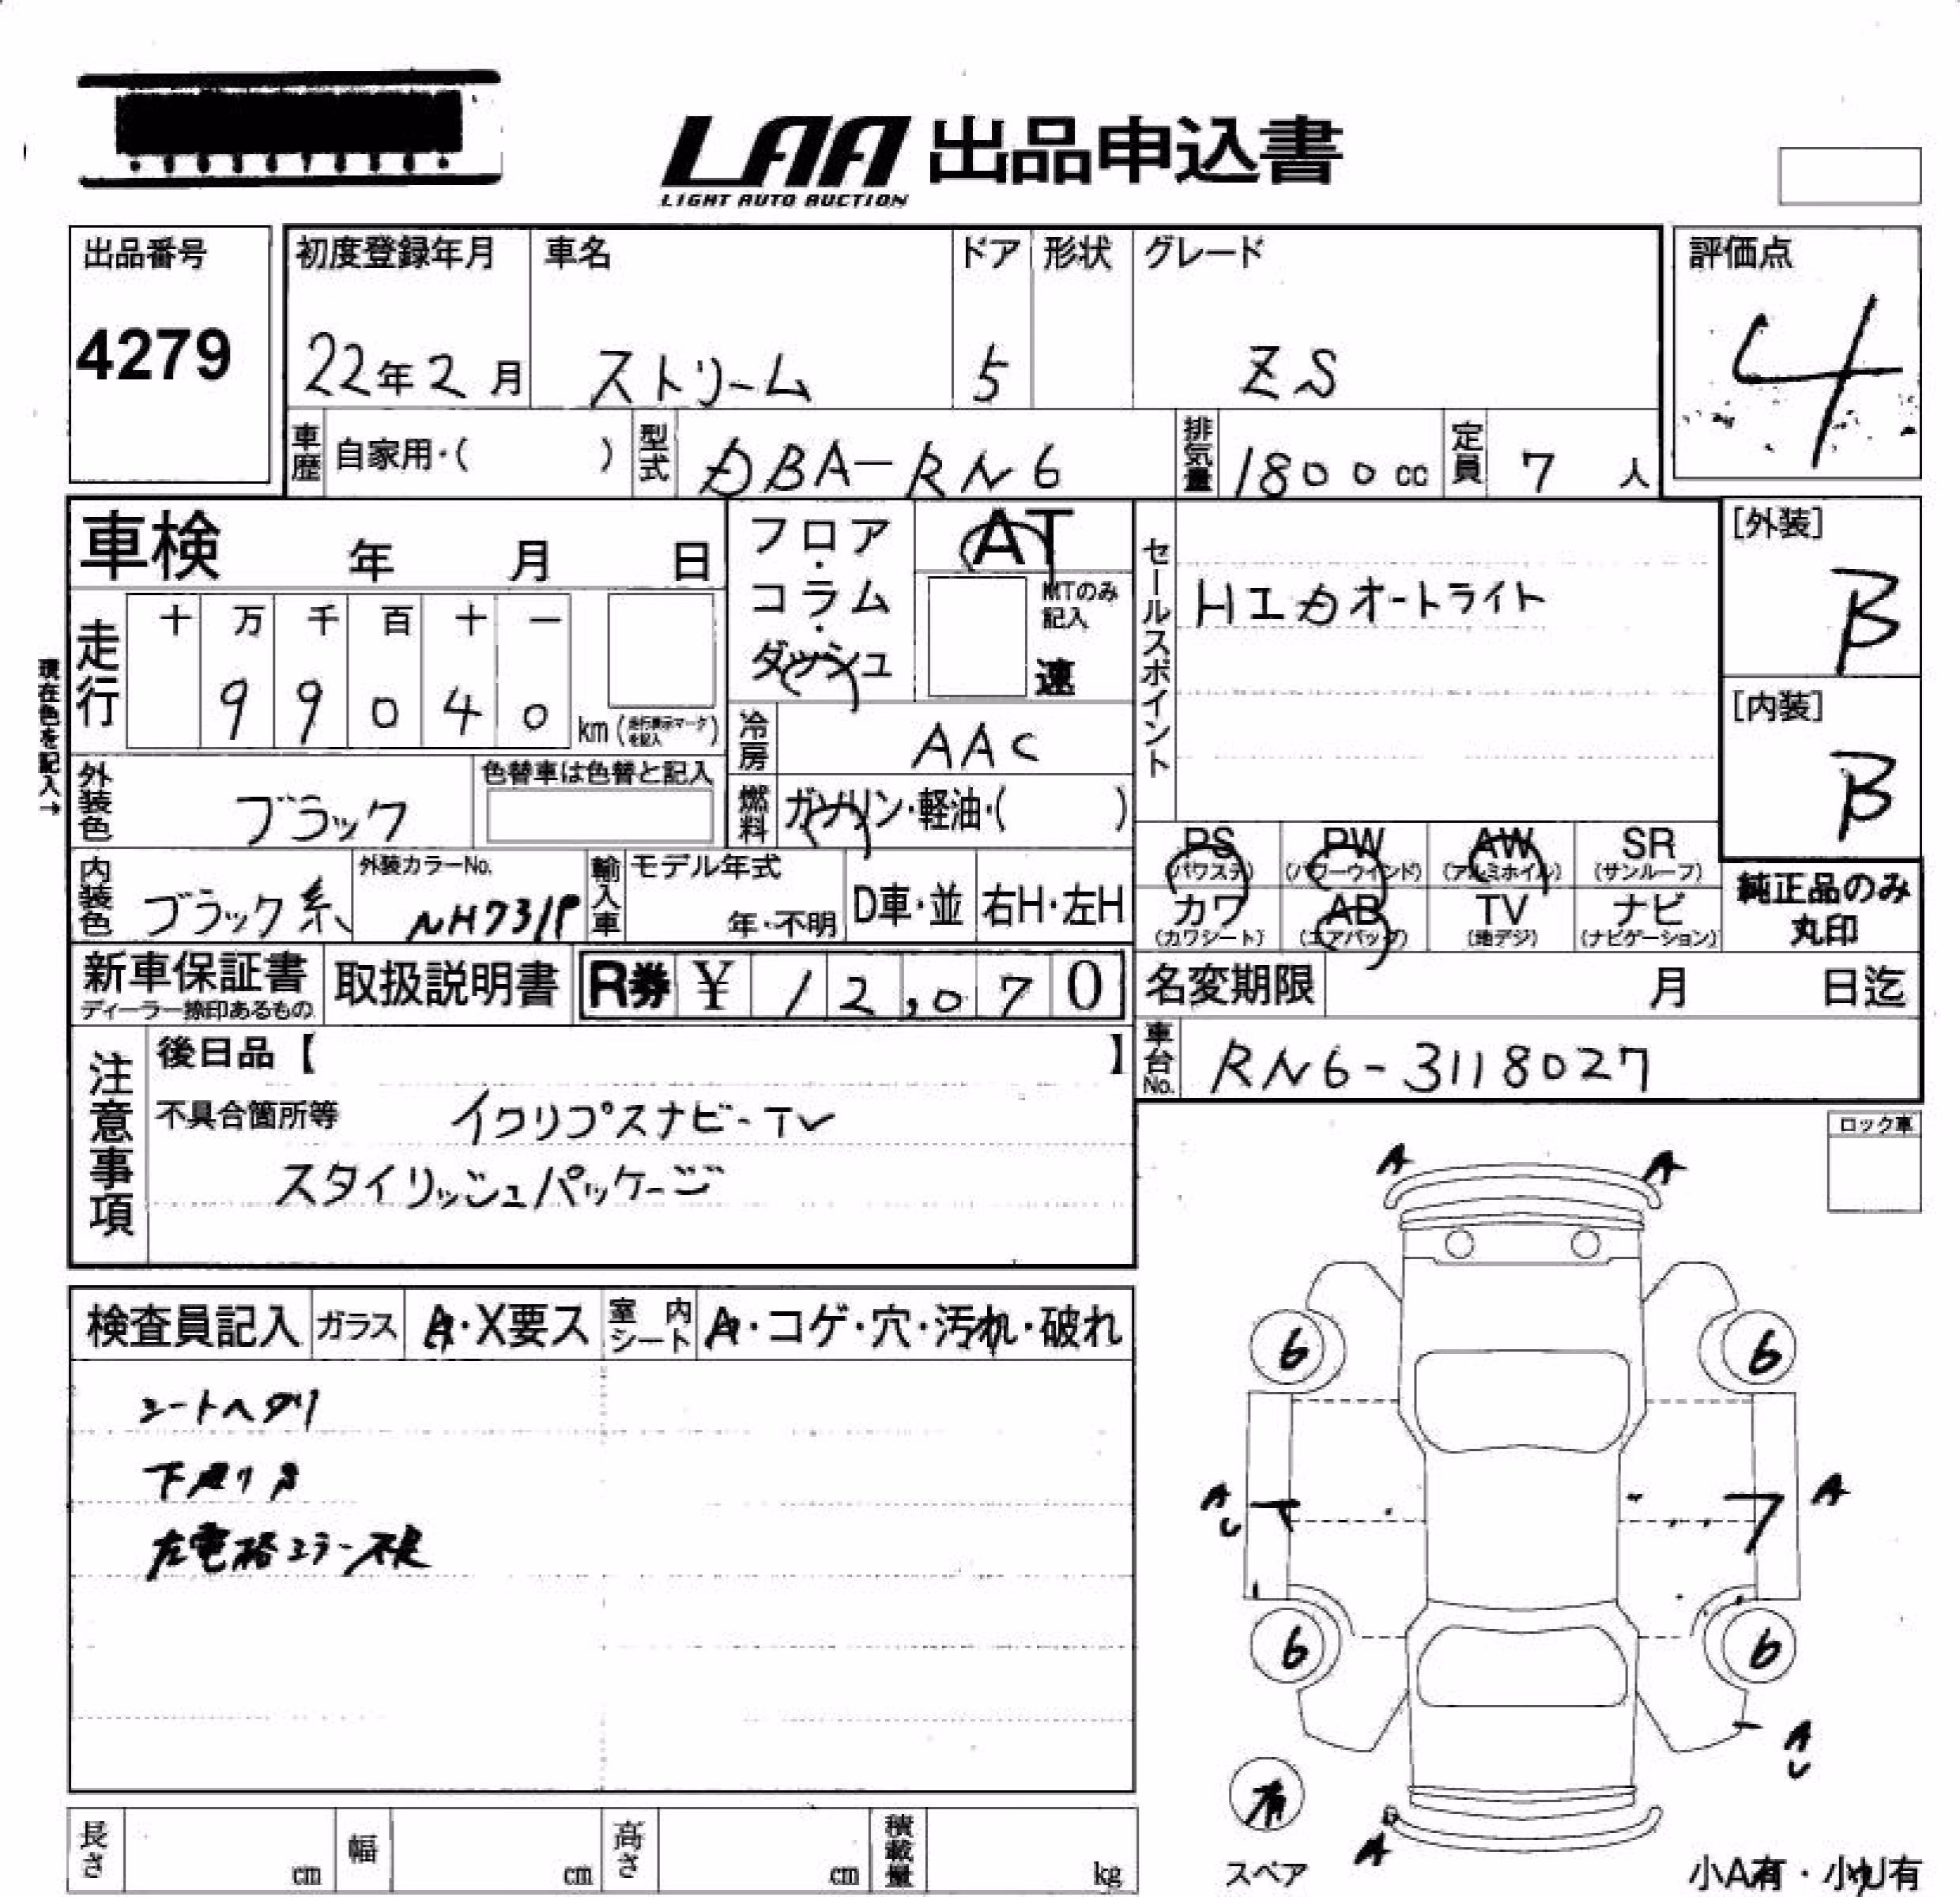 LAA 出品申込書
LIGHT AUTO AUCTION
出品番号
4279
初度登録年月
22年2月
車名
ストリーム
ドア
5
形状
グレード
ZS
評価点
4
車歴
自家用・( )
型式
DBA-RN6
排気量
1800cc
定員
7人
車検 年 月 日
フロア・コラム・ダッシュ
AT
MTのみ記入
速
セールスポイント
HIDオートライト
[外装]
B
[内装]
B
現在色を記入→
走行
十 万 千 百 十 一
9 9 0 4 0 km (走行表示マークを記入)
冷房
AAC
外装色
ブラック
色替車は色替と記入
燃料
ガソリン・軽油・( )
PS (パワステ)
PW (パワーウィンド)
AW (アルミホイル)
SR (サンルーフ)
カワ (カワシート)
AB (エアバッグ)
TV (地デジ)
ナビ (ナビゲーション)
純正品のみ
丸印
内装色
ブラック系
外装カラーNo.
NH731P
輸入車
モデル年式
年・不明
D車・並
右H・左H
新車保証書
ディーラー捺印あるもの
取扱説明書
R券 ¥ 12,070
名変期限 月 日迄
車台No.
RN6-3118027
注意事項
後日品【 】
不具合箇所等 イクリプスナビ-TV
スタイリッシュパッケージ
ロック車
検査員記入
ガラス
A・X要ス
室内シート
A・コゲ・穴・汚れ・破れ
シートヘタリ
左電格ミラー不良
A A
6 6
A U A
6 6
A U
有
スペア
A
小A有・小U有
長さ cm
幅 cm
高さ cm
積載量 kg